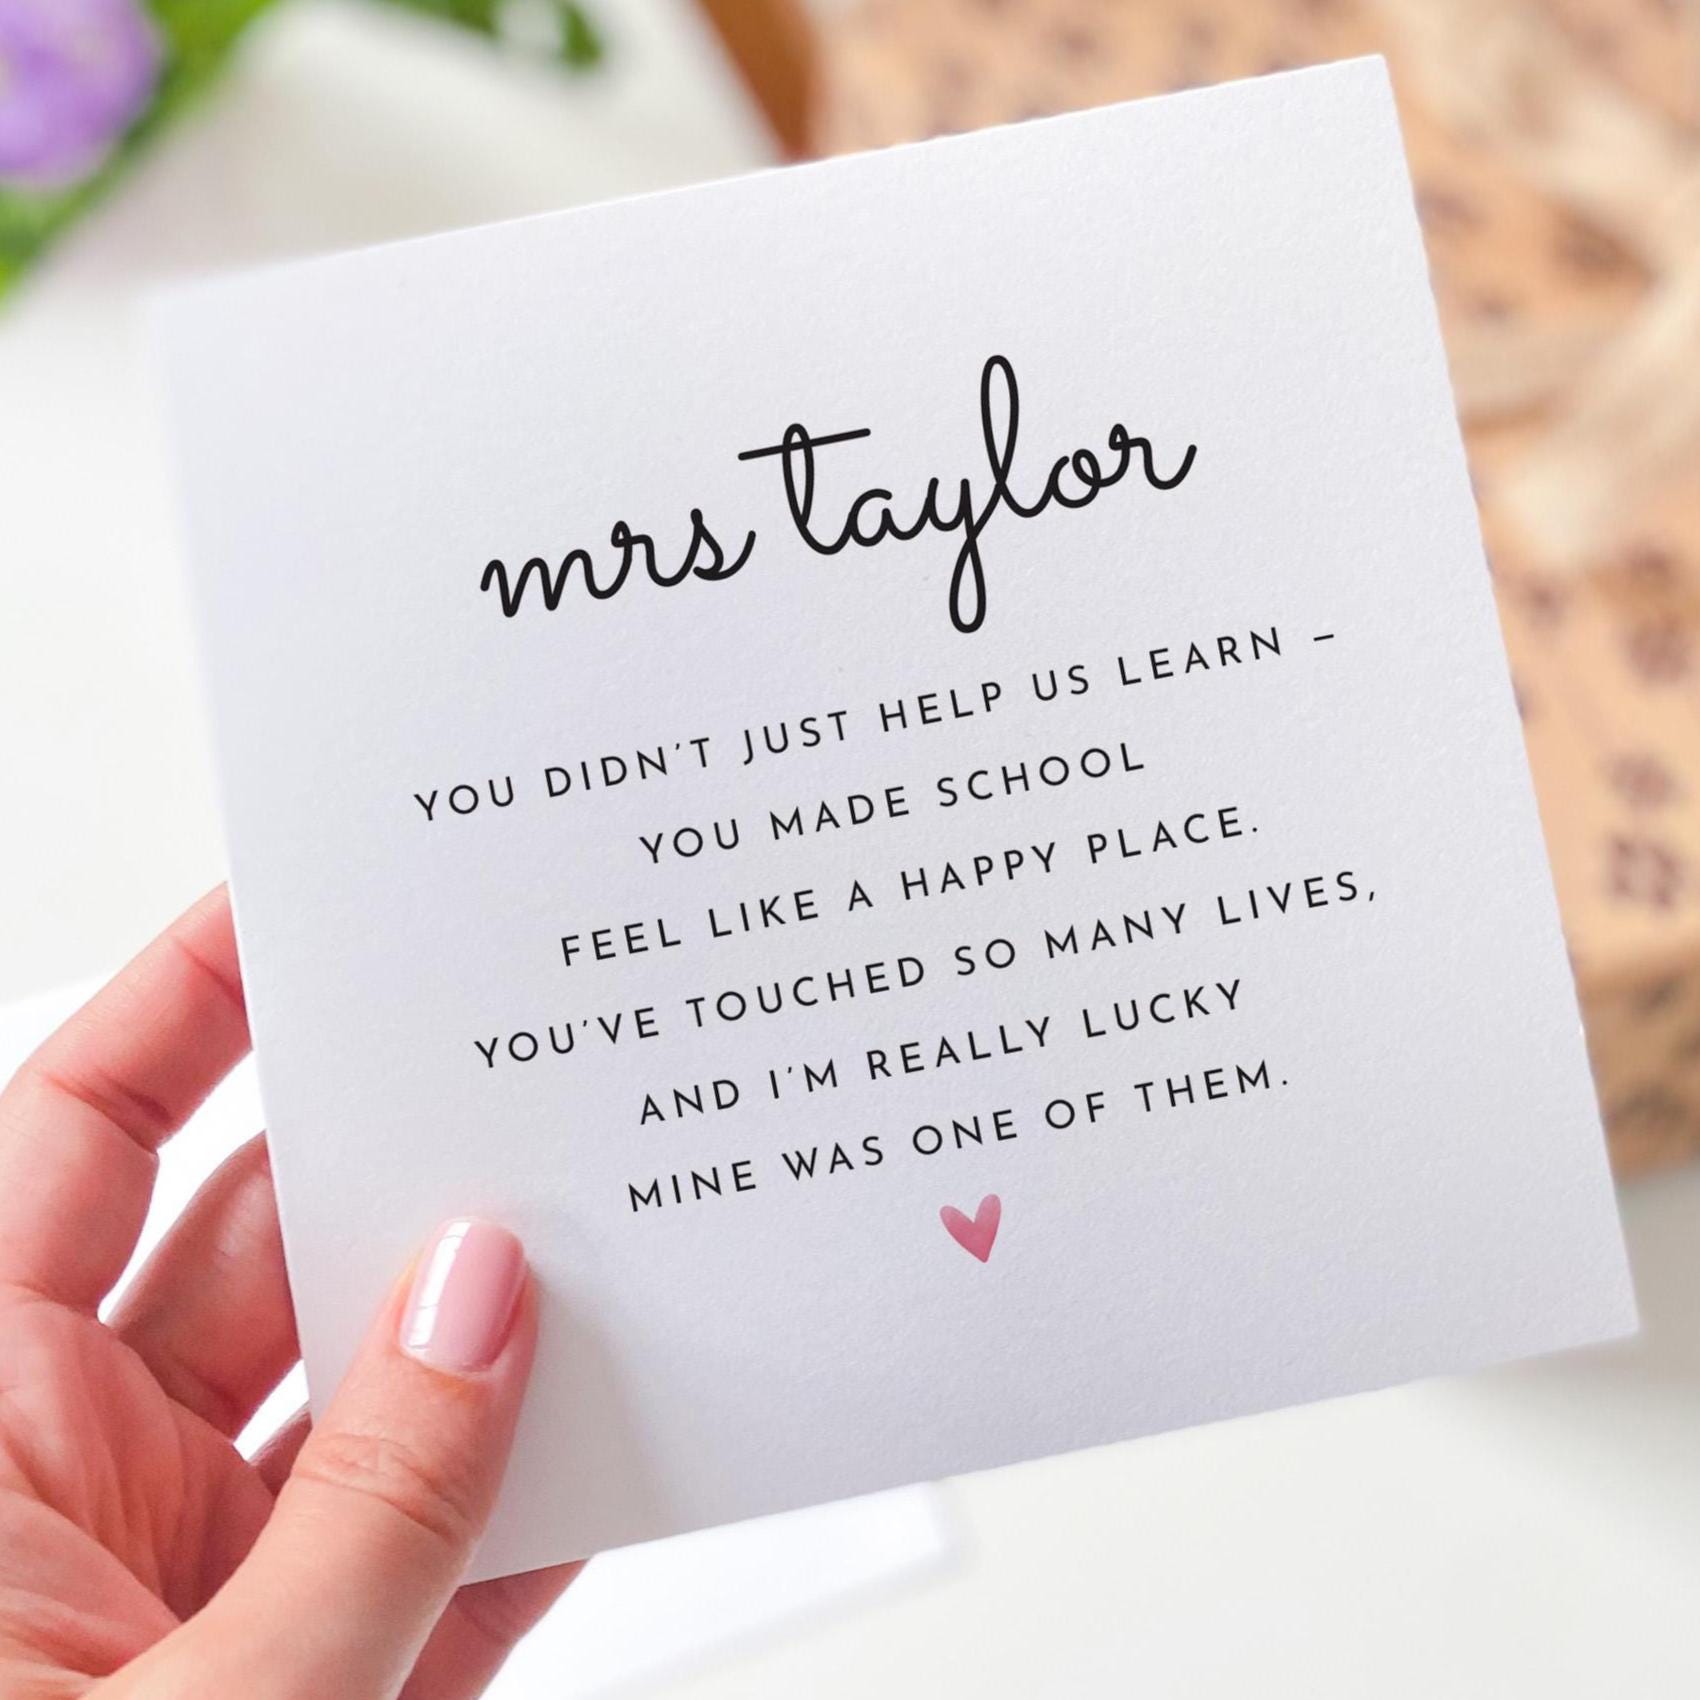 mrs taylor
YOU DIDN'T JUST HELP US LEARN –
YOU MADE SCHOOL
FEEL LIKE A HAPPY PLACE.
YOU'VE TOUCHED SO MANY LIVES,
AND I'M REALLY LUCKY
MINE WAS ONE OF THEM.